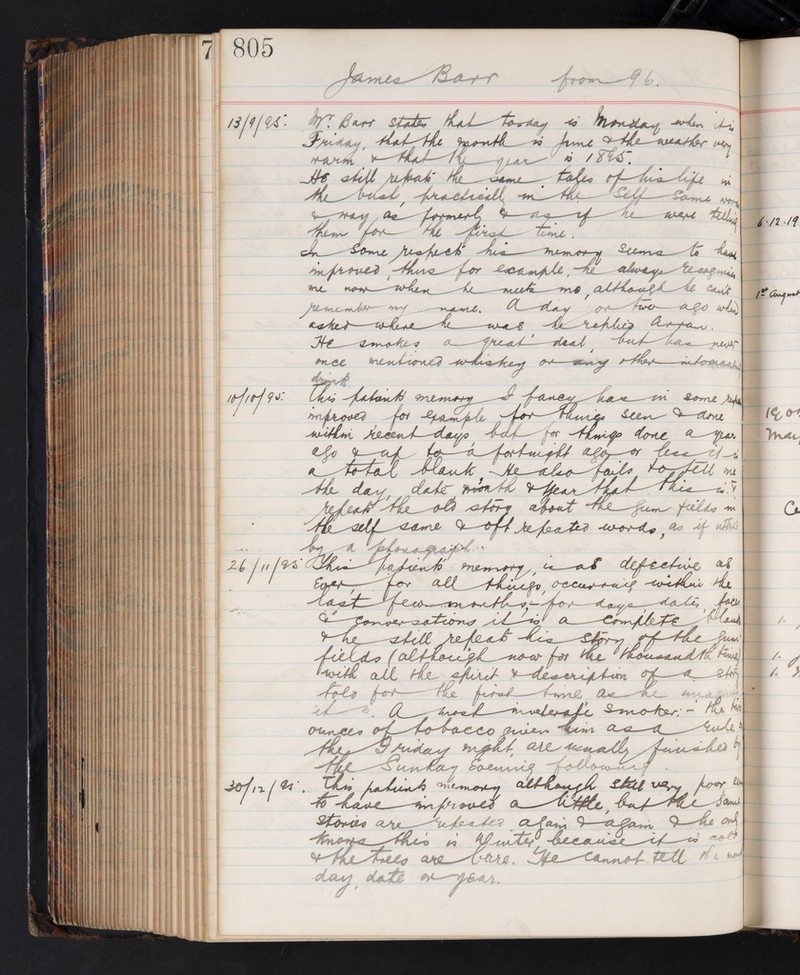 7
805
James Barr from 96.
13/9/95. Mr. Barr states that to-day is Monday when it is
Friday, that the month is June & the weather very
warm & that the year is 1895.
He still repeats the same tales of his life in
the bush, practically in the self same words
& way as formerly & as if he were telling
them for the first time.
In some respects his memory seems to have
improved, thus for example, he always recognises
me now when he meets me, although he can't
remember my name. A day or two ago when
asked where he was he replied Arran.
He smokes a great deal, but has never
once mentioned whiskey or any other intoxicating
drink.
10/10/95. This patients memory I fancy has in some
improved for example for things seen & done
within recent days, but for things done a year
ago & up to a fortnight ago or less it is
a total blank. He also fails to tell me
the day, date, month & year that this is. &
repeats the old story about the gum fields in
the self same & oft repeated words, as if
by a phonograph.
26/11/95 This patients memory, is as defective as
Ever, for all things, occurring within the
last few months - for days dates, faces
& conversations it is a complete blank
& he still repeats his story of the gum
fields (although now for the thousandth time)
with all the spirit & description of a story
told for the first time as he imagines
it is. A most inveterate smoker: - the two
ounces of tobacco given him as a rule on
the Friday night are usually finished by
the Sunday Evening following.
30/12/95. This patients memory although still very poor
to have improved a little, but the same
stories are repeated again & again & he only
knows this is Winter because it is cold
& the trees are bare. He cannot tell the
day, date or year.
6.12.19
1st August